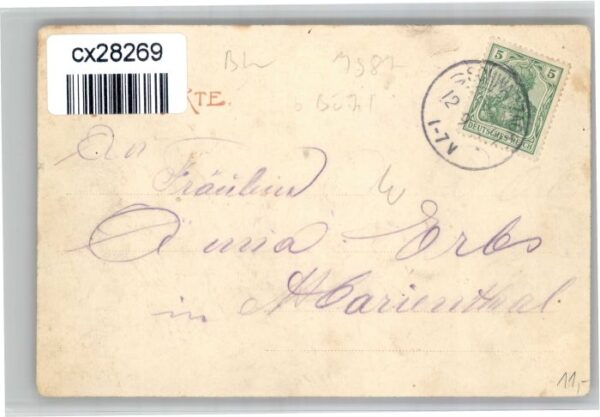 cx28269
KTE.
Bühl
5
DEUTSCHES REICH
12
1-7N
An
Fräulein
Anna Erbs
in Marienthal.
11,-